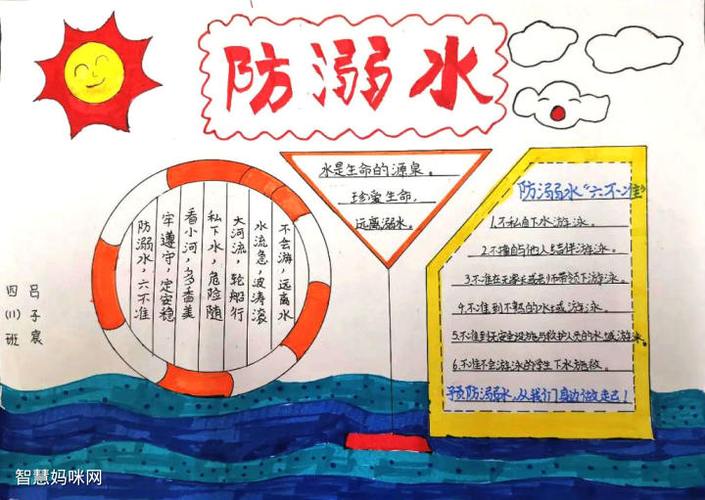 防溺水
水是生命的源泉。
珍爱生命,
远离溺水。
防溺水,六不准
牢遵守,定安稳
看小河,多番美
私下水,危险随
大河流,轮船行
水流急,波涛滚
不会游,远离水
防溺水"六不准"
1.不私自下水游泳。
2.不擅自与他人结伴游泳。
3.不准在无家长或老师带领下游泳。
4.不准到不熟的水域游泳。
5.不准到无安全设施与救护人员的水域游泳。
6.不准不会游泳的学生下水施救。
预防溺水,从我们身边做起!
四(11)班
吕子宸
智慧妈咪网